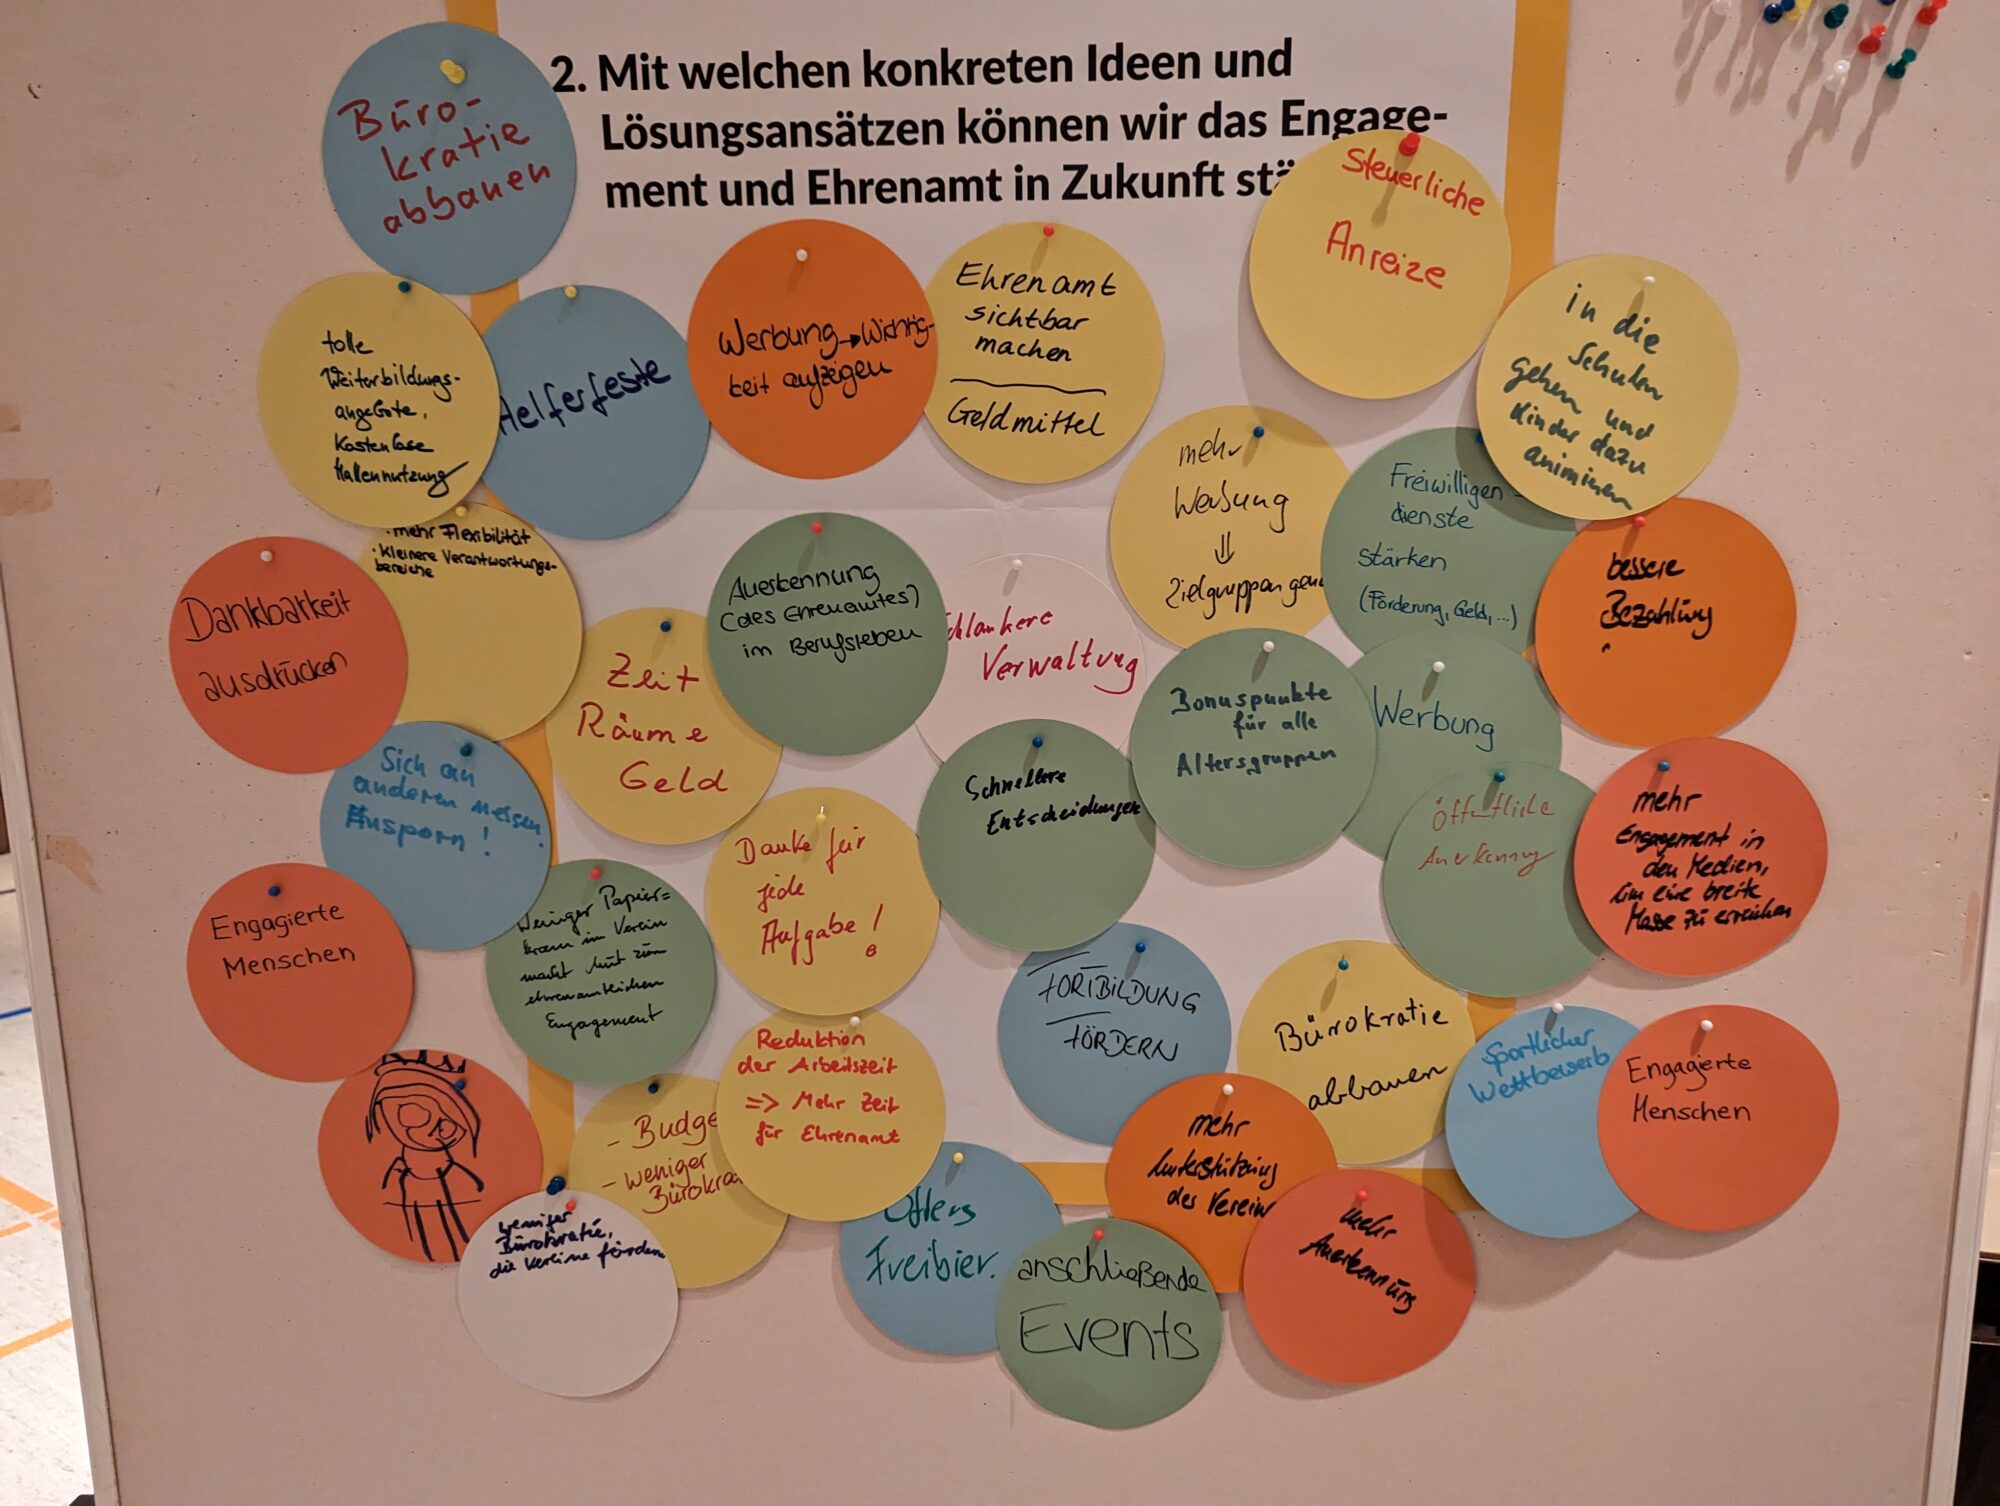 2. Mit welchen konkreten Ideen und
Lösungsansätzen können wir das Engage-
ment und Ehrenamt in Zukunft stä
Büro-
kratie
abbauen
Steuerliche
Anreize
tolle
Weiterbildungs-
angebote,
Kostenlose
Hallennutzung
Helferfeste
Werbung→Wichtig-
keit aufzeigen
Ehrenamt
sichtbar
machen
Geldmittel
in die
Schulen
gehen und
Kinder dazu
animieren
mehr
Werbung
⇓
Zielgruppen
Freiwilligen-
dienste
stärken
(Förderung, Geld,...)
bessere
Bezahlung
· mehr Flexibilität
· kleinere Verantwortungs-
bereiche
Dankbarkeit
ausdrücken
Zeit
Räume
Geld
Anerkennung
(des Ehrenamtes)
im Berufsleben
chlankere
Verwaltung
Bonuspunkte
für alle
Altersgruppen
Werbung
Sich an
anderen messen
Ansporn!
Schnellere
Entscheidungen
öffentliche
Anerkennung
mehr
Engagement in
den Medien,
um eine breite
Masse zu erreichen
Danke für
jede
Aufgabe!
Engagierte
Menschen
Weniger Papier=
kram im Verein
macht Lust zum
ehrenamtlichen
Engagement
FORTBILDUNG
FÖRDERN
Bürokratie
abbauen
Sportlicher
Wettbewerb
Engagierte
Menschen
Reduktion
der Arbeitszeit
=> Mehr Zeit
für Ehrenamt
- Budge
- weniger
Bürokra
mehr
Unterstützung
des Vereins
weniger
Bürokratie,
die Vereine fördern
Öfters
Freibier.
anschließende
Events
mehr
Anerkennung